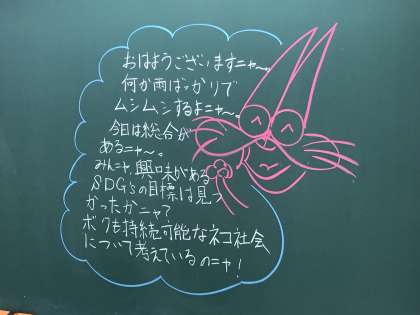 おはようございますニャ〜。
何か雨ばっかりで
ムシムシするよニャ〜。
今日は総合が
あるニャ〜。
みんニャ、興味がある
SDG'sの目標は見つ
かったかニャ?
ボクも持続可能なネコ社会
について考えているのニャ!